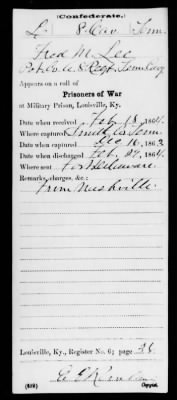 (Confederate.)
L 8 Cav Tenn.
Fred M. Lee
Pvt Co A 8 Regt Tenn Cavy
Appears on a roll of
Prisoners of War
at Military Prison, Louisville, Ky.
Date when received Feb 13, 1864.
Where captured Smith Co Tenn.
Date when captured Dec 16, 1863.
Date when discharged Feb. 29, 1864.
Where sent Fort Delaware.
Remarks, charges, &c.:
From Nashville.
Louisville, Ky., Register No. 6; page 36
(639)